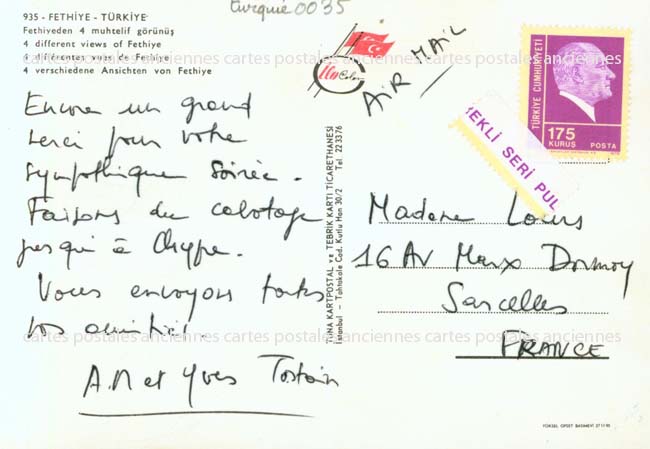 turquie0035
935 - FETHİYE - TÜRKİYE
Fethiyeden 4 muhtelif görünüş
4 different views of Fethiye
4 différentes vues de Fethiye
4 verschiedene Ansichten von Fethiye
Color
AIR MAIL
TÜRKİYE CUMHURİYETİ
175
KURUŞ POSTA
EKLİ SERİ PUL
Encore un grand
merci pour votre
sympathique soirée.
Faisons du cabotage
jusqu'à Chypre.
Vous envoyons toutes
nos amitiés.
A.M et Yves Tostain
TUNA KARTPOSTAL ve TEBRİK KARTI TİCARETHANESİ
İstanbul - Tahtakale Cad. Kutlu Han 30/2 Tel. 223376
Madame Louis
16 Av Marx Dormoy
Sarcelles
FRANCE
cartes postales anciennes cartes postales anciennes cartes postales anciennes
YÜKSEL OFSET BASIMEVİ